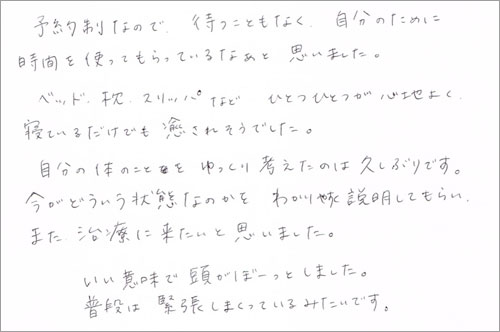 予約制なので、待つこともなく、自分のために
時間を使ってもらっているなあと 思いました。
ベッド、枕、スリッパなど ひとつひとつが心地よく、
寝ているだけでも癒されそうでした。
自分の体のことをゆっくり考えたのは久しぶりです。
今がどういう状態なのかを わかりやすく説明してもらい、
また、治療に来たいと思いました。
いい意味で頭がぼーっとしました。
普段は緊張しまくっているみたいです。